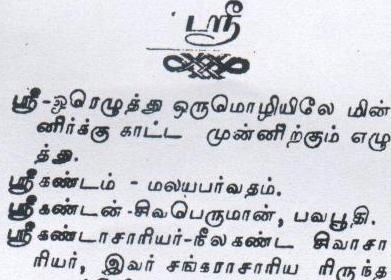 ஸ்ரீ
ஸ்ரீ-ஓரெழுத்து ஒருமொழியிலே மின்
னிர்க்கு காட்ட முன்னிற்கும் எழு
த்து.
ஸ்ரீகண்டம் - மலயபர்வதம்.
ஸ்ரீகண்டன்-சிவபெருமான், பவபூதி.
ஸ்ரீகண்டாசாரியர்-நீலகண்ட சிவாசா
ரியர், இவர் சங்கராசாரிய ரிருந்த